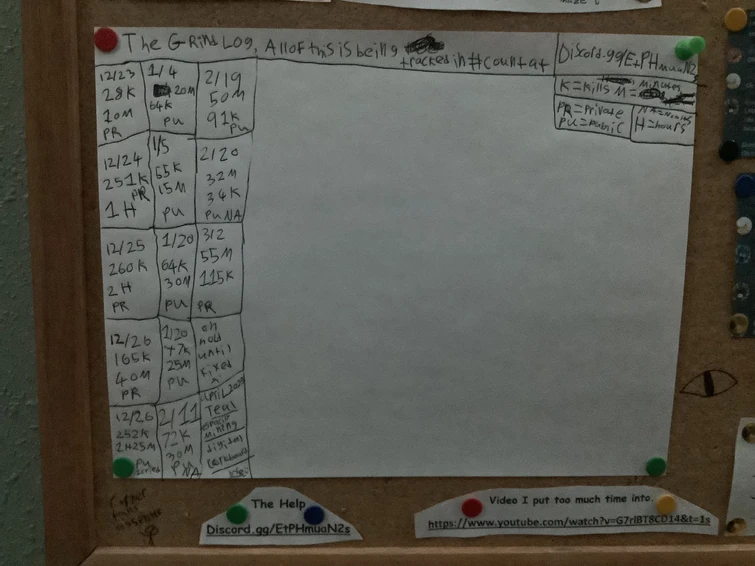 The Grind Log, All of this is being
tracked in #count at
Discord.gg/EtPHmuaN2s
K=Kills M=minutes
PR=Private
PU=Public
NA=
H=hours
12/23
28K
20M
PR
1/4
20M
64K
PU
2/19
50M
91K
PU
12/24
251K
PR
1H
1/5
55K
15M
PU
2/20
32M
34K
PU NA
12/25
260K
2H
PR
1/20
64K
30M
PU
3/2
55M
115K
PR
12/26
165K
40M
PR
1/20
47K
25M
PU
on
hold
until
fixed
12/26
252K
2H25M
PU
2/11
72K
30M
PU
NA
April
Teal
mining
The Help
Discord.gg/EtPHmuaN2s
Video I put too much time into.
https://www.youtube.com/watch?v=G7rlBT8CD14&t=1s